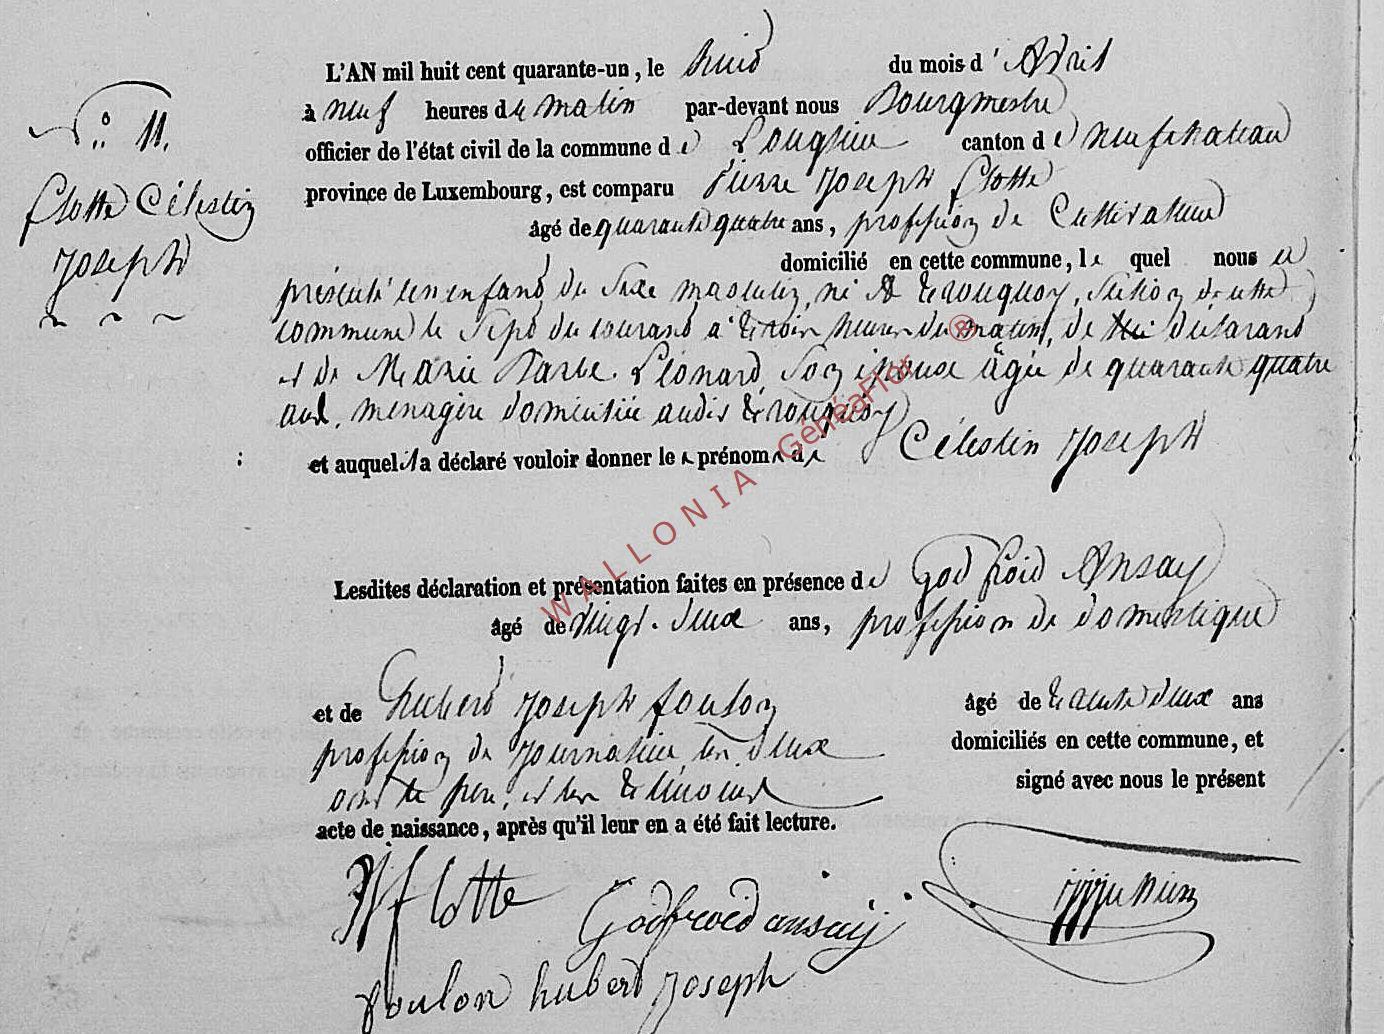 N.° 11.
flotte Célestin
Joseph
L'AN mil huit cent quarante-un, le huid du mois d' Avril
à neuf heures du matin par-devant nous Bourgmestre
officier de l'état civil de la commune de Longlier canton de neufchateau
province de Luxembourg, est comparu Pierre Joseph flotte
âgé de quarante quatre ans, profession de Cultivateur
domicilié en cette commune, le quel nous a
présenté un enfand du sexe masculin, né à tronquoy, Section de cette
commune le Sept du courand à trois heures du matin, de lui déclarand
et de Marie Barbe Léonard, son épouse âgée de quarante quatre
ans, menagère domiciliée audit tronquoy
et auquel il a déclaré vouloir donner les prénoms de Célestin Joseph
Lesdites déclaration et présentation faites en présence de God froid Ansay
âgé de vingt-deux ans, profession de domestique
et de hubert Joseph foulon âgé de trente deux ans
profession de journalier, les deux domiciliés en cette commune, et
ont le père, et les témoins signé avec nous le présent
acte de naissance, après qu'il leur en a été fait lecture.
PJ flotte
Godfroid ansay
foulon hubert joseph
WALLONIA GénéaFlor ®